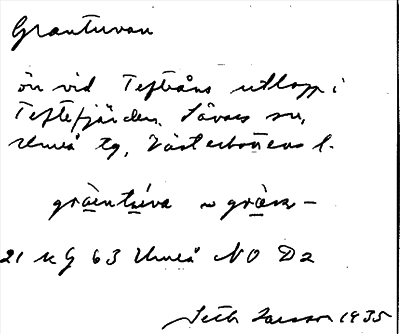 Grantuvan
ön vid Tefteåns utlopp i
Teftefjärden, Sävars sn,
Umeå tg, Västerbottens l.
gràentúva ~ gràen–
21 K G 63 Umeå NO D2
Seth Larsson 1935